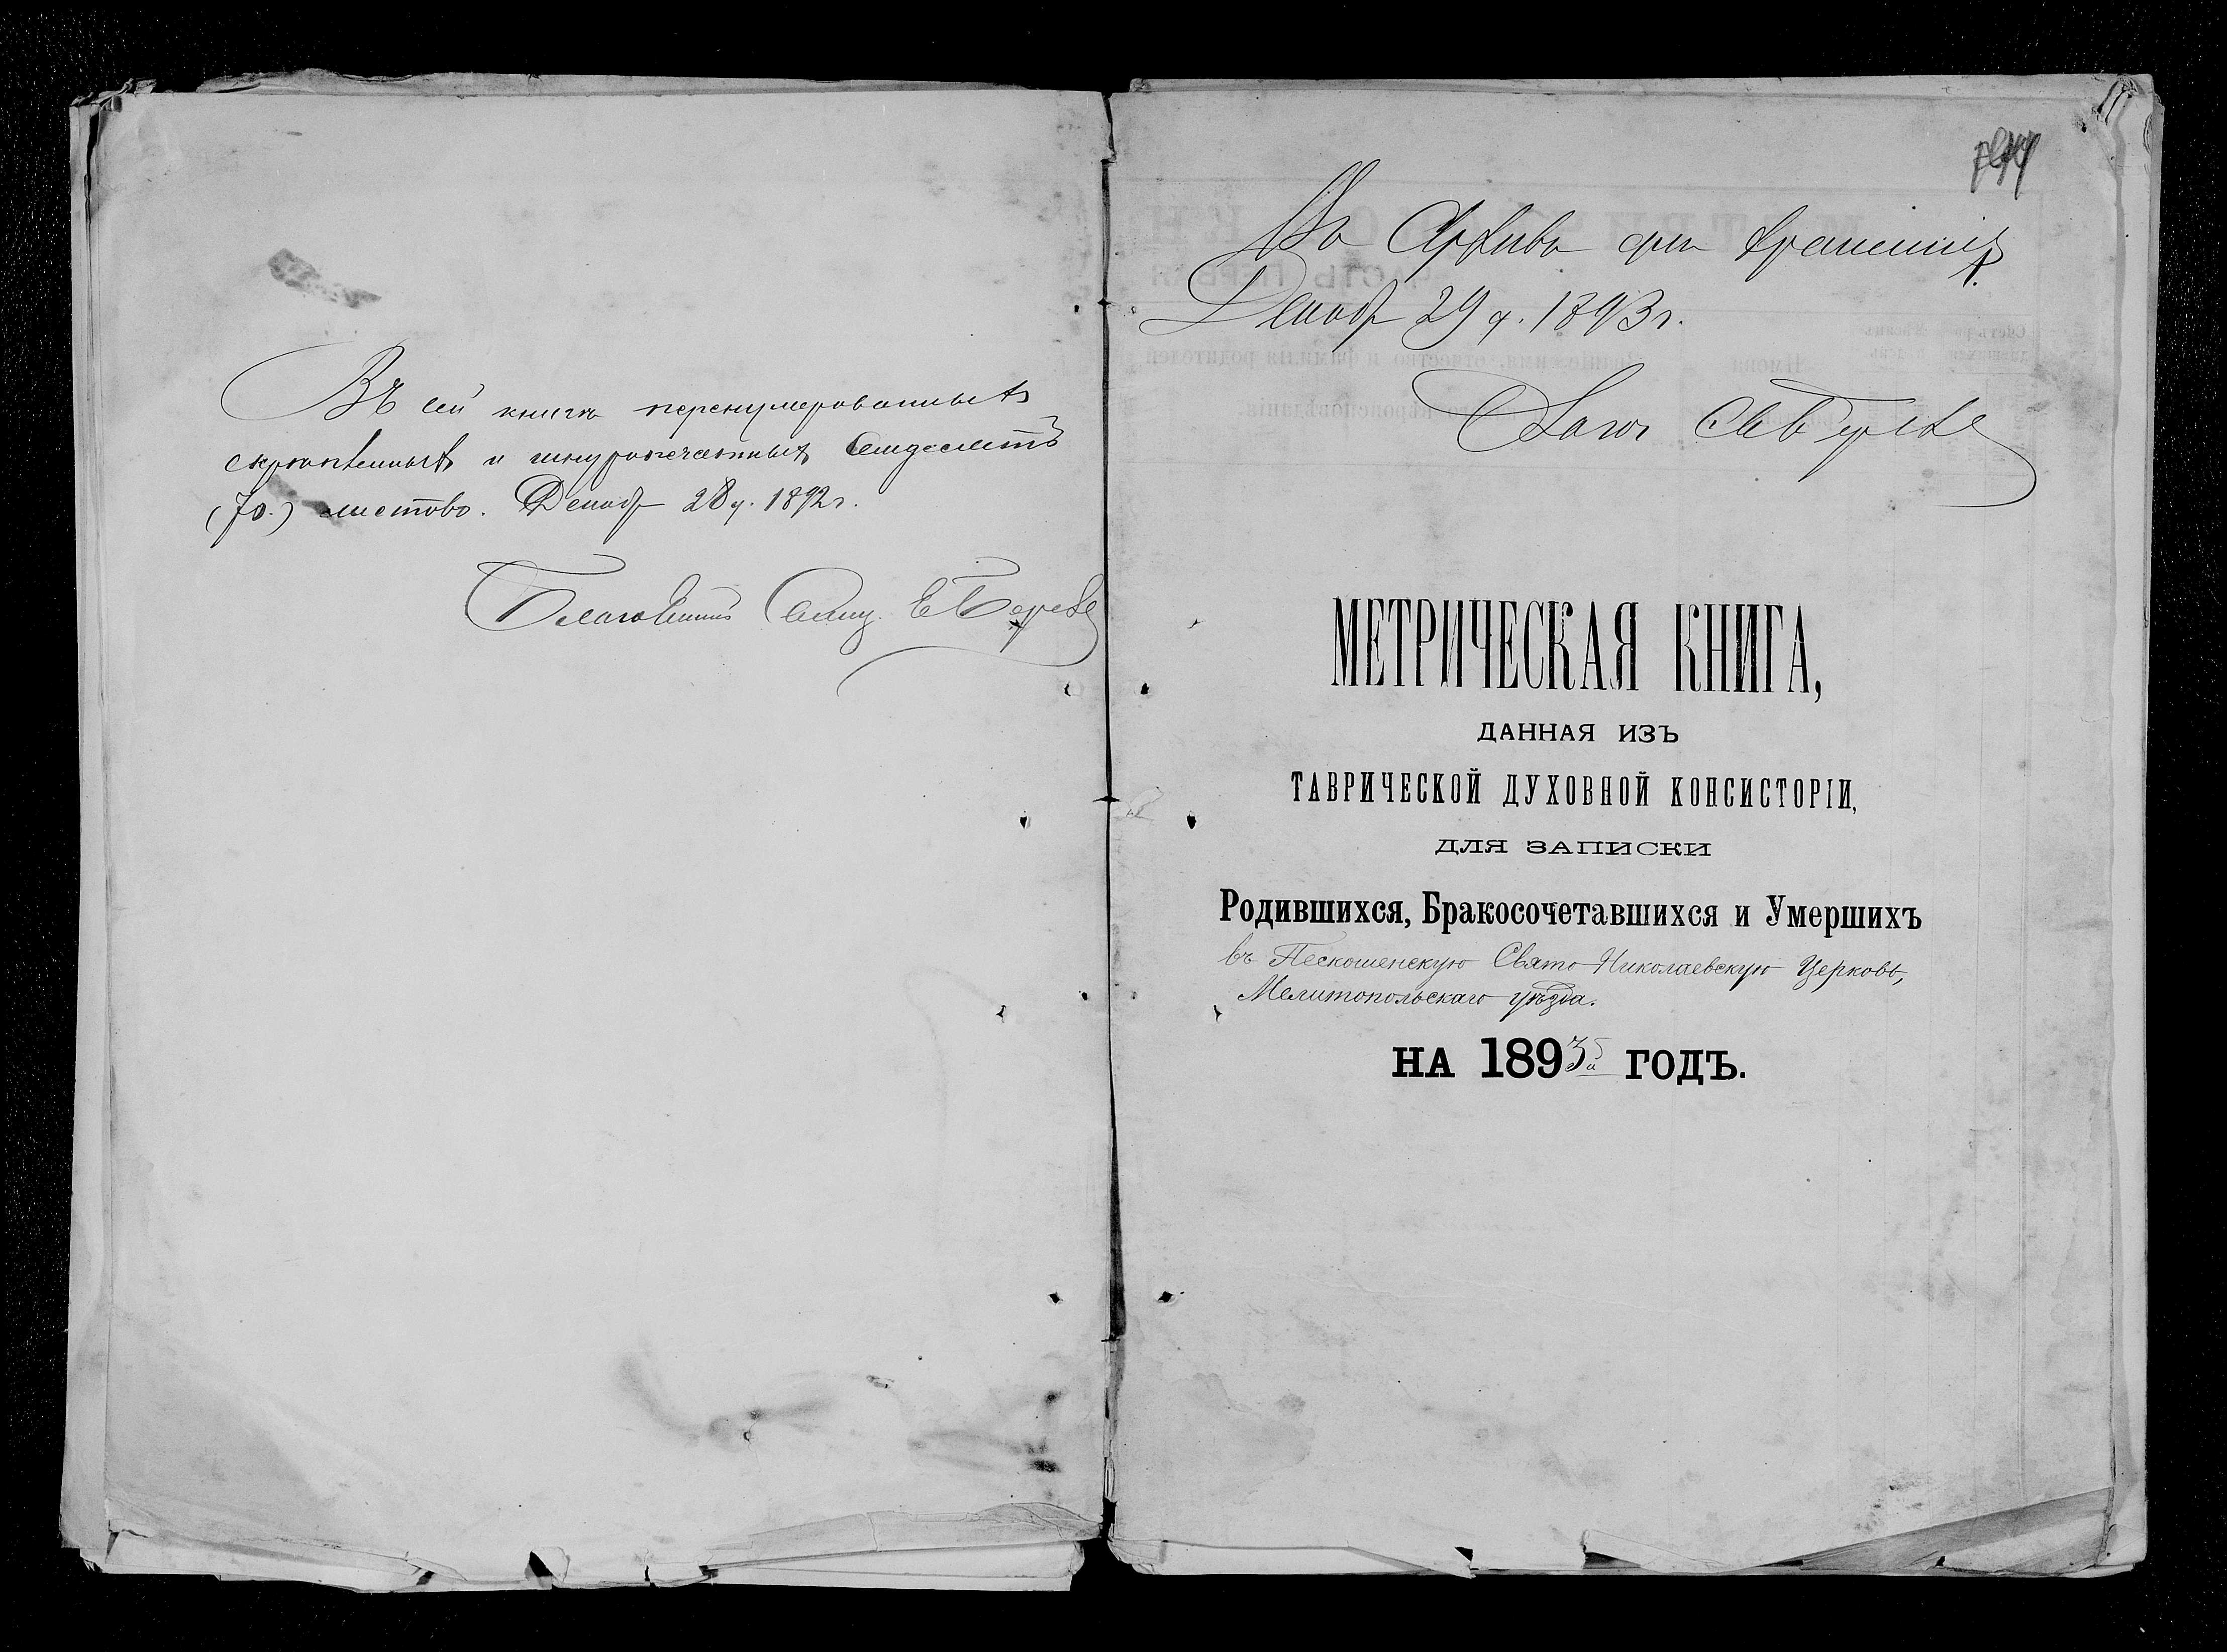 Въ сей книгѣ перенумерованныхъ
скрѣпленныхъ и шнуропечатныхъ семдесятъ
(70.) листовъ. Декабр 28 д. 1892 г.
Благочинный Свящ.
Въ Архивъ для хранения
Декабр 29 д. 1893 г.
Благоч
МЕТРИЧЕСКАЯ КНИГА,
ДАННАЯ ИЗЪ
ТАВРИЧЕСКОЙ ДУХОВНОЙ КОНСИСТОРІИ,
ДЛЯ ЗАПИСКИ
Родившихся, Бракосочетавшихся и Умершихъ
въ Пескошенскую Свято-Николаевскую Церковь,
Мелитопольскаго уѣзда.
НА 1893й ГОДЪ.